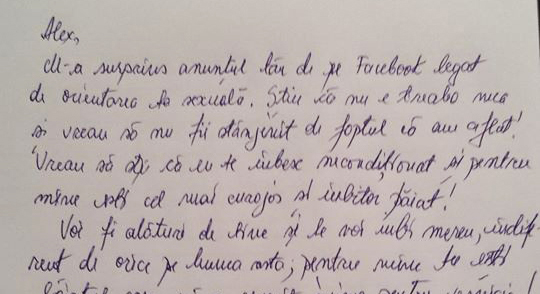 Alex,
M-a surprins anunțul tău de pe Facebook legat
de orientarea ta sexuală. Știu că nu e treaba mea
și vreau să nu fii stânjenit de faptul că am aflat!
Vreau să știi că eu te iubesc necondiționat și pentru
mine ești cel mai curajos și iubitor băiat!
Voi fi alături de tine și te voi iubi mereu, indife-
rent de orice pe lumea asta; pentru mine tu ești